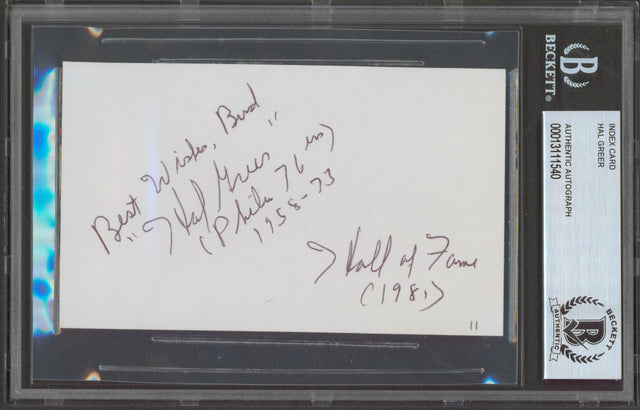 Best Wishes, Bud
"Hal Greer"
(Phila 76ers)
1958-73
Hall of Fame
(1981)
11
BECKETT®
INDEX CARD
HAL GREER
AUTHENTIC AUTOGRAPH
00013111540
BECKETT
AUTHENTIC